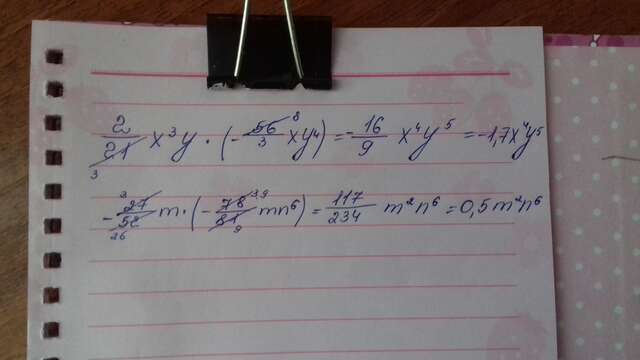 2/21 x³y · (-56/3 xy⁴) = -16/9 x⁴y⁵ = -1,7x⁴y⁵
-27/52 m · (-78/81 mn⁶) = 117/234 m²n⁶ = 0,5m²n⁶